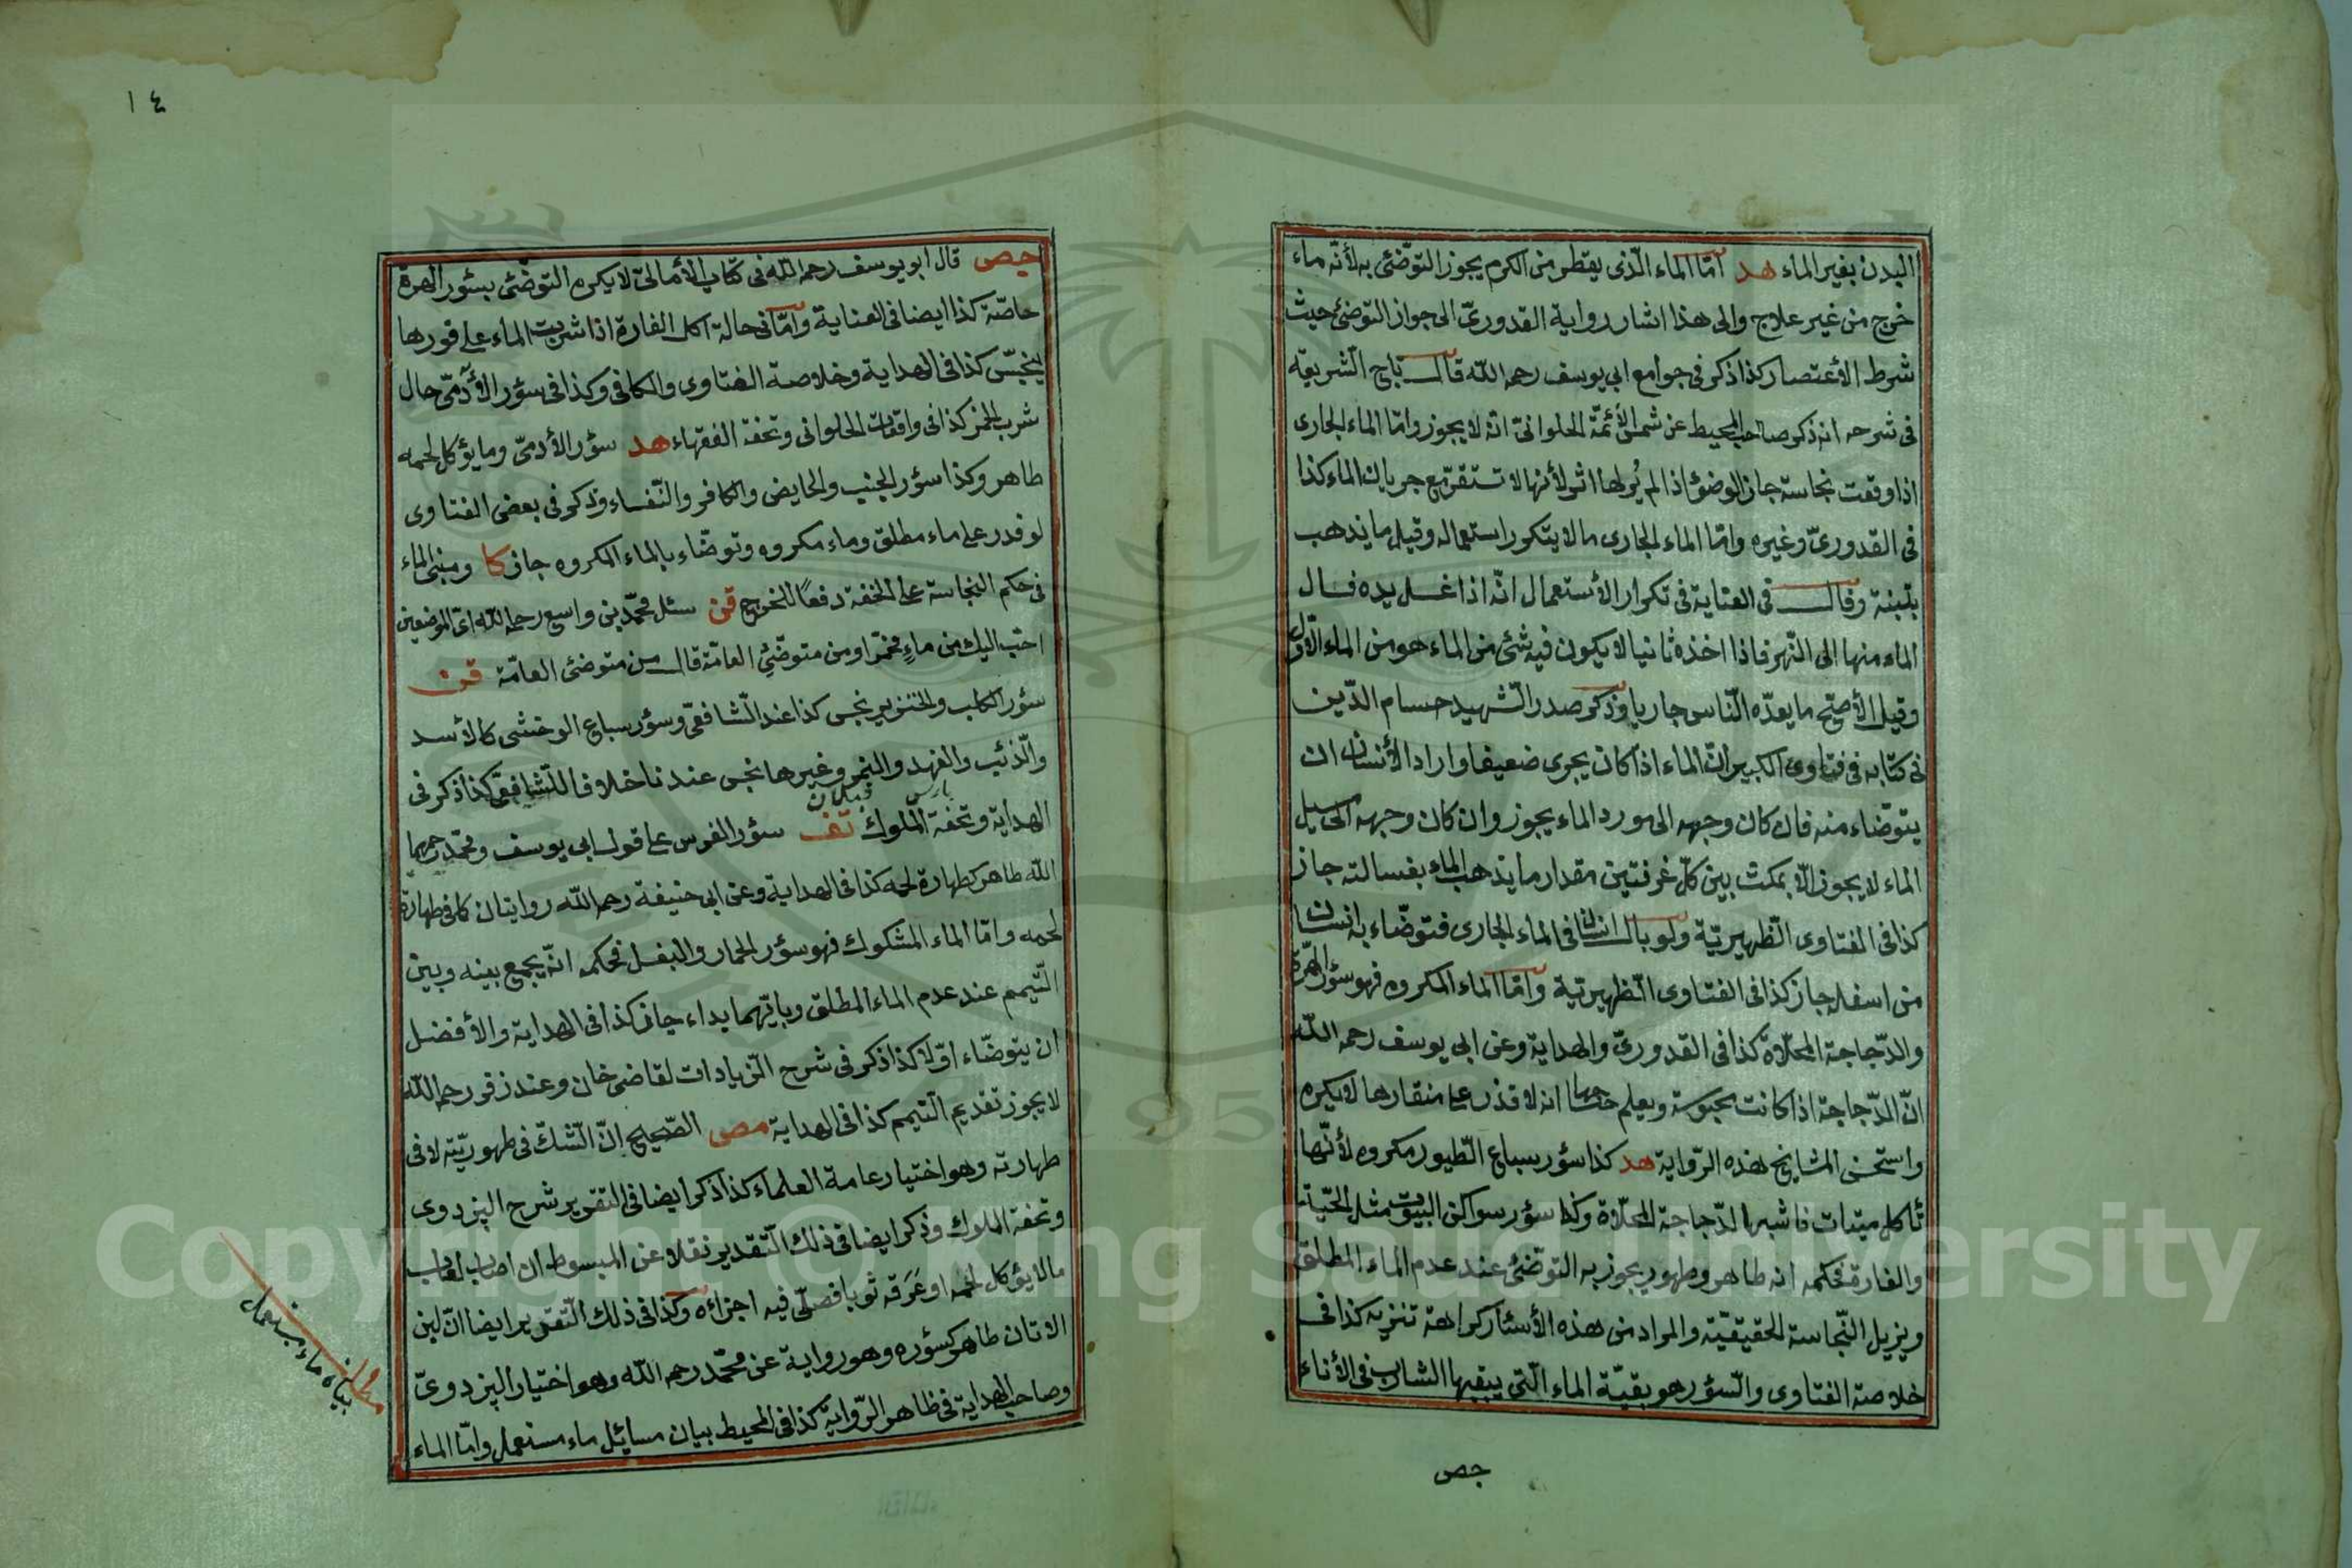 البدن بغير الماء هد امّا الماء الّذى يقطر من الكرم يجوز التوضّئ به لأنّه ماء
خرج من غير علاج والى هذا اشار رواية القدورىّ الى جواز التوضئ حيث
شرط الأعتصار كذا ذكر فى جوامع ابى يوسف رحمه اللّه قال تاج الشّريعه
فى شرحه انه ذكر صاحب المحيط عن شمس الأئمّة الحلوانىّ انّه لا يجوز وامّا الماء الجارى
اذا وقعت نجاسة جاز الوضؤ اذا لم يُر لها اثر لأنها لا تستقرّ مع جريان الماء كذا
فى القدورىّ وغيره وامّا الماء الجارى ما لا يتكرر استعماله وقيل ما يذهب
بتبنة وقال فى العناية فى تكرار الأستعمال انّه اذا غسل يده فسال
الماء منها الى النّهر فاذا اخذه ثانيا لا يكون فيه شئ من الماء هو من الماء الاّول
وقيل الأصحّ ما يعدّه النّاس جاريا وذكر صدر الشّهيد حسام الدّين
فى كتابه فى فتاوى الكبير انّ الماء اذا كان يجرى ضعيفا واراد الأنسان ان
يتوضّاء منه فان كان وجهه الى مورد الماء يجوز وان كان وجهه الى مسيل
الماء لا يجوز الّا بمكث بين كلّ غرفتين مقدار ما يذهب الماء بغسالته جاز
كذا فى الفتاوى الظّهيريّة ولو بال انسان فى الماء الجارى فتوضّاء به انسان
من اسفله جاز كذا فى الفتاوى الظّهيريّة وامّا الماء المكروه فهو سؤر الهرّة
والدّجاجة المخلّاة كذا فى القدورىّ والهداية وعن ابى يوسف رحمه اللّه
انّ الدّجاجة اذا كانت محبوسة ويعلم صاحبها انه لا قذر على منقارها لا يكره
واستحسن المشايخ هذه الرّواية هد كذا سؤر سباع الطّيور مكروه لأنّها
تأكل ميتات فاشبه الدّجاجة المخلّاة وكذا سؤر سواكن البيوت مثل الحيّة
والفارة فحكمه انه طاهر وطهور يجوز به التوضّئ عند عدم الماء المطلق
ويزيل النّجاسة الحقيقيّة والمراد من هذه الأسئار كراهة تنزيه كذا فى
خلاصة الفتاوى والسّؤر هو بقيّة الماء الّتى يبقيها الشارب فى الأناء
جص
١٤
جص قال ابو يوسف رحمه اللّه فى كتاب الأمالىّ لا يكره التوضّئ بسؤر الهرة
خاصّة كذا ايضا فى العناية وامّا فى حالة اكل الفارة اذا شربت الماء على فورها
ينجّس كذا فى الهداية وخلاصة الفتاوى والكافى وكذا فى سؤر الأدمّى حال
شرب الخمر كذا فى واقعات الحلوانى وتحفة الفقهاء هد سؤر الأدمىّ وما يؤكل لحمه
طاهر وكذا سؤر الجنب والحايض والكافر والنّفساء وذكر فى بعض الفتاوى
لو قدر على ماء مطلق وماء مكروه وتوضّاء بالماء المكروه جاز كا ومبنى الماء
فى حكم النجاسة على الخفة دفعًا للحرج قن سئل محمّد بن واسع رحمه اللّه اىّ الوضوئين
احبّ اليك من ماءٍ مخمّر او من متوضّئ العامّة قال من متوضئ العامّة قن
سؤر الكلب والخنزير نجس كذا عند الشّافعىّ وسؤر سباع الوحشى كالأسد
والذّئب والفهد والنمر وغيرها نجس عندنا خلافا للشّافعىّ كذا ذكر فى
بارس قبلان
الهداية وتحفة الملوك تف سؤر الفرس على قول ابى يوسف ومحمّد رحمهما
اللّه طاهر كطهارة لحمه كذا فى الهداية وعن ابى حنيفة رحمه اللّه روايتان كما فى طهارة
لحمه وامّا الماء المشكوك فهو سؤر الحمار والبغل فحكمه انّه يجمع بينه وبين
التّيمم عند عدم الماء المطلق وبايّهما يداء جاز كذا فى الهداية والأفضل
ان يتوضّاء اوّلا كذا ذكر فى شرح الزّيادات لقاضى خان وعند زفر رحمه اللّه
لا يجوز تقديم التّيمم كذا فى الهداية مص الصّحيح انّ الشّكّ فى طهوريّته لا فى
طهارته وهو اختيار عامة العلماء كذا ذكر ايضا فى التقرير شرح البزدوى
وتحفة الملوك وذكر ايضا فى ذلك التّقدير نقلا عن المبسوط ان اصاب لعاب
ما لا يؤكل لحمه او عَرَقه ثوبا فصلّى فيه اجزاءه وكذا فى ذلك التّقرير ايضا انّ لبن
الاتان طاهر كسؤره وهو رواية عن محمّد رحمه اللّه وهو اختيار البزدوىّ
وصاحب الهداية فى ظاهر الرّواية كذا فى المحيط بيان مسائل ماء مستعمل وامّا الماء
مطلب
بيان ماء مستعمل
Copyright © King Saud University